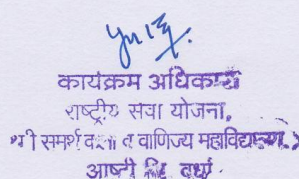 कार्यक्रम अधिकारी
राष्ट्रीय सेवा योजना,
समर्थ व वाणिज्य महाविद्यालय,
आष्टी जि. वर्धा.